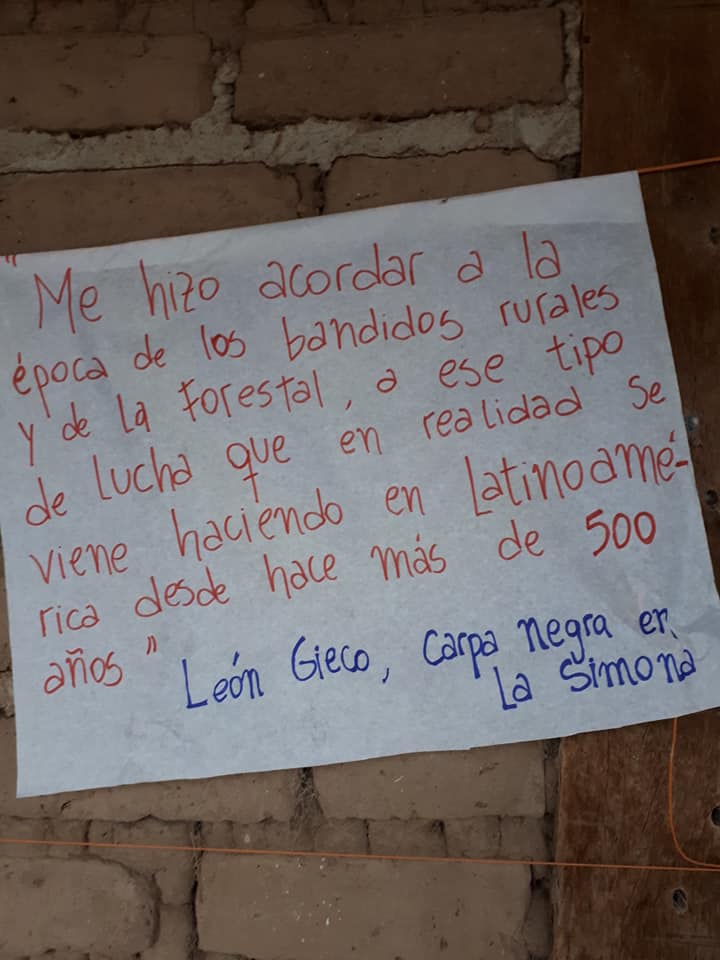 "Me hizo acordar a la
época de los bandidos rurales
y de la Forestal, a ese tipo
de lucha que en realidad se
viene haciendo en Latinoamé-
rica desde hace más de 500
años"
León Gieco, carpa negra en
La Simona